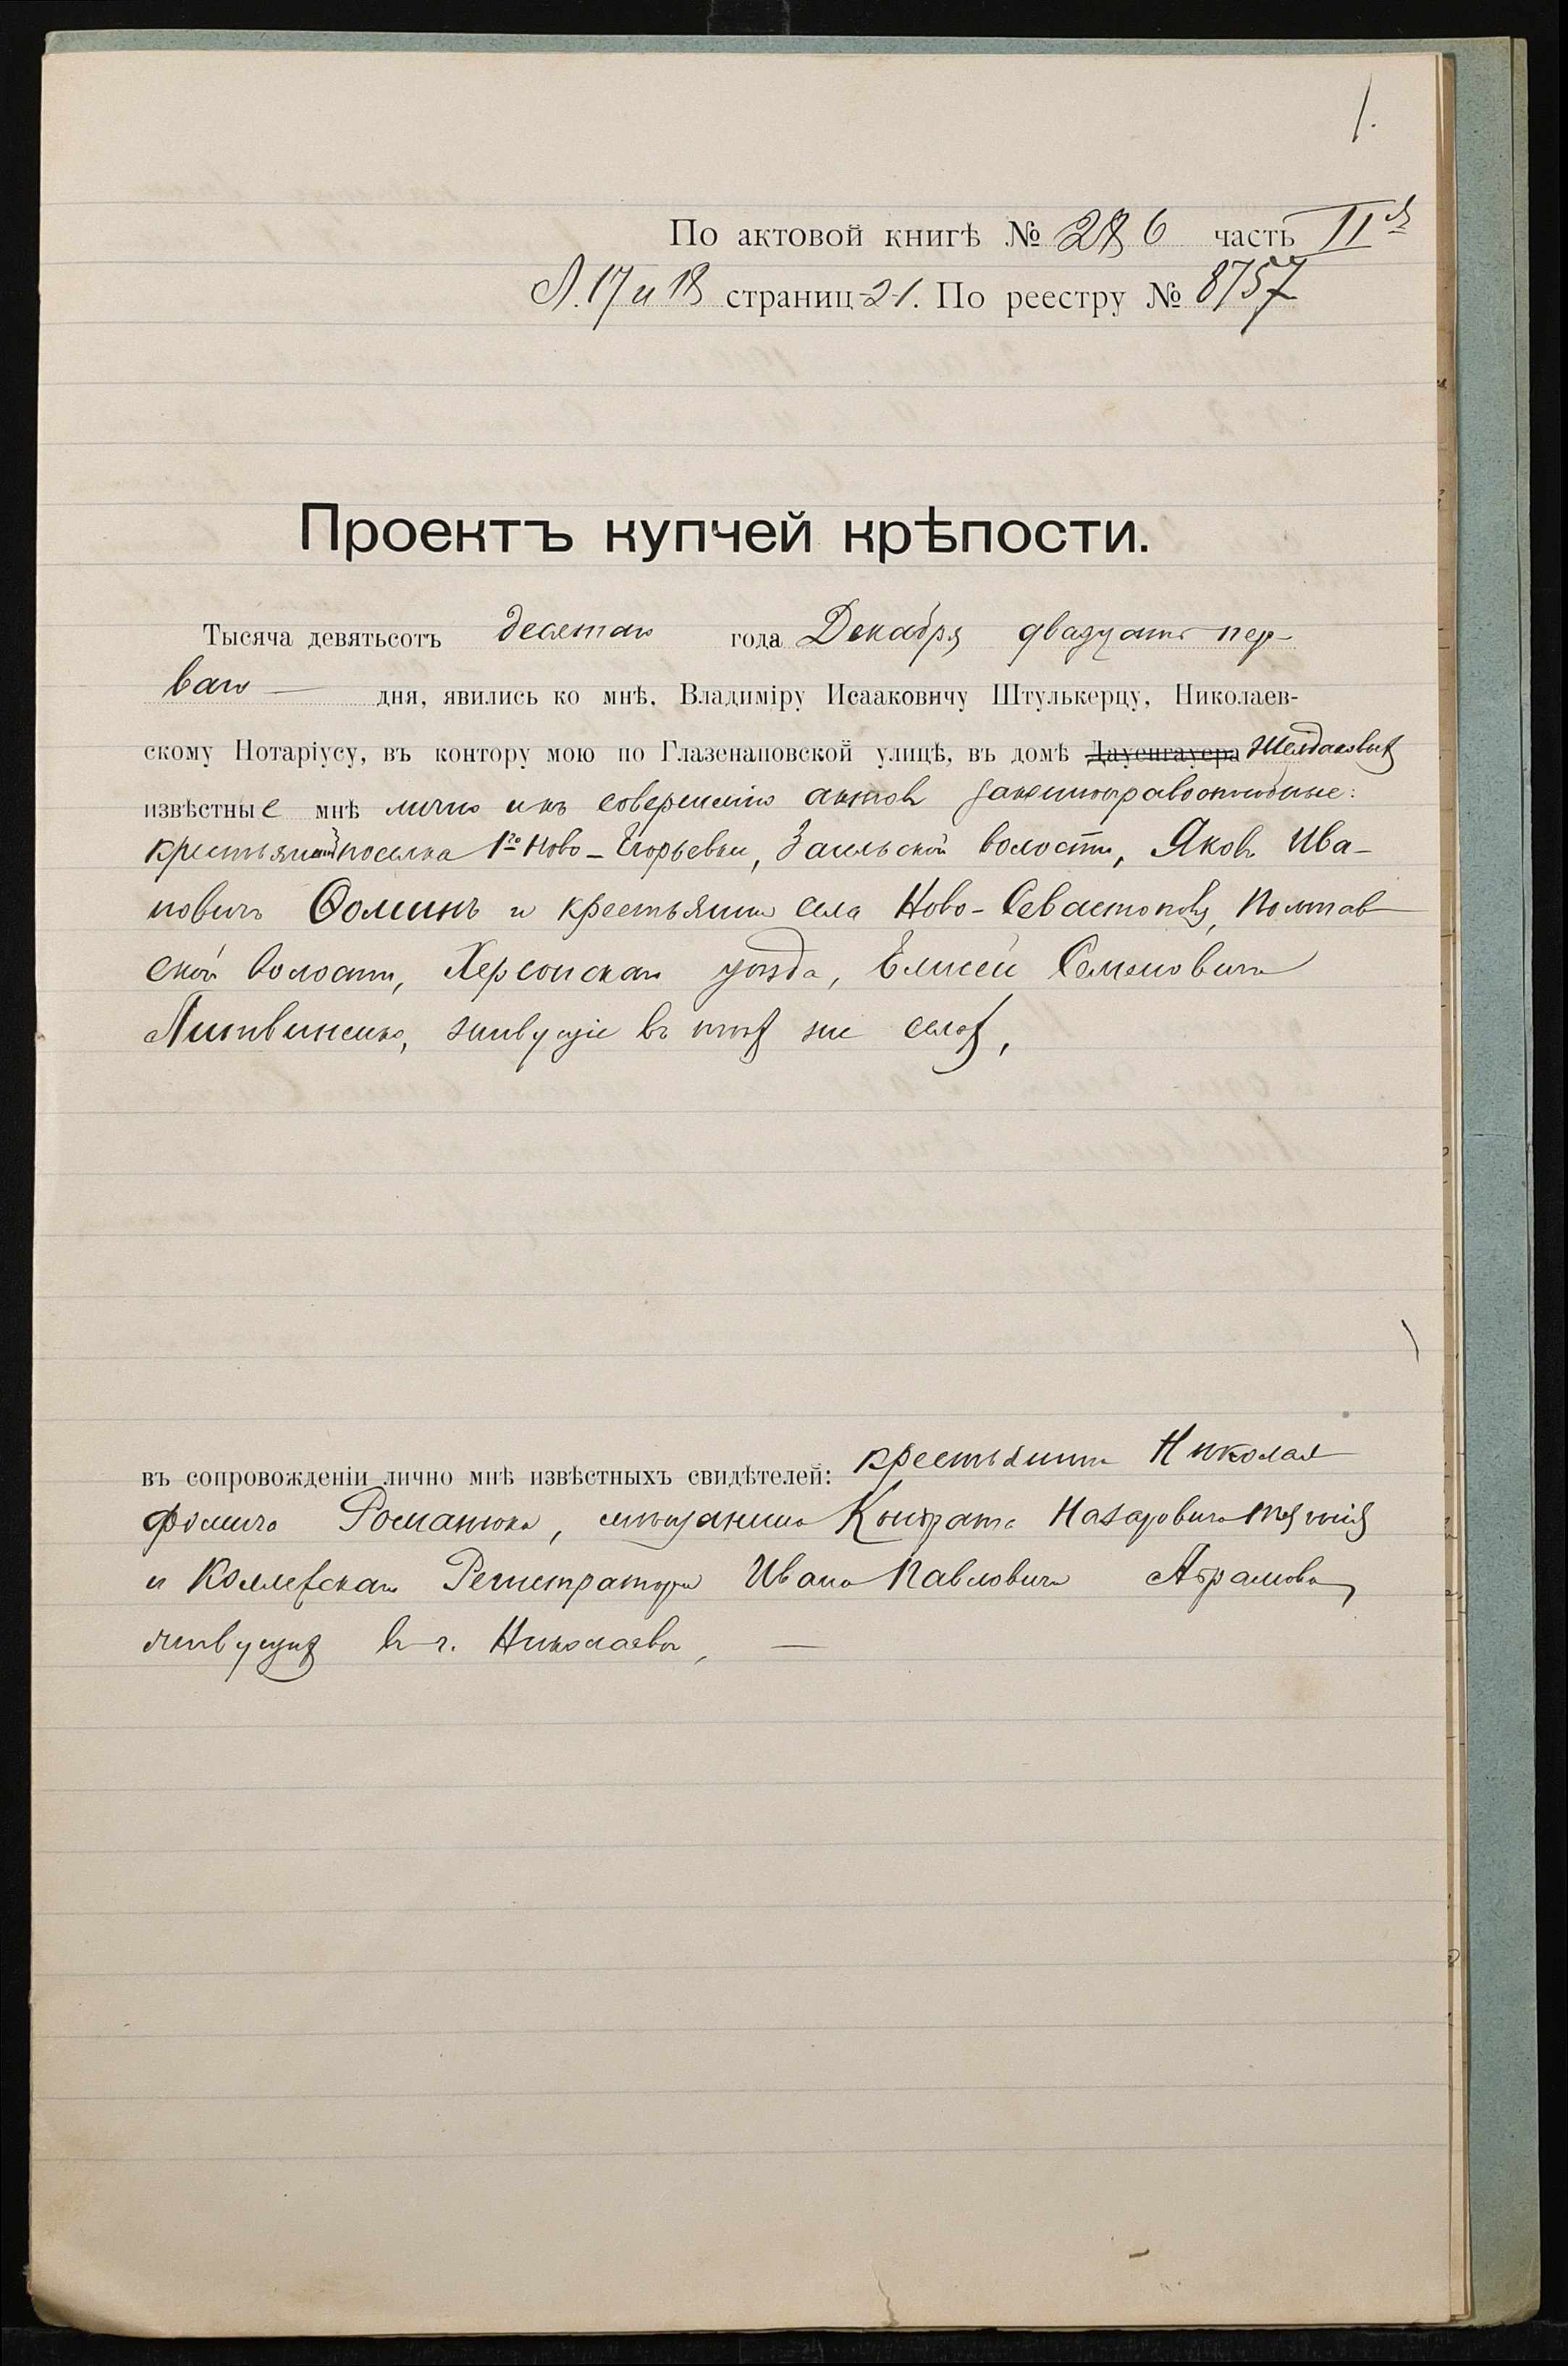 1.
По актовой книгѣ № 286 часть II я
Л. 17 и 18 страниц 21. По реестру № 8757
Проектъ купчей крѣпости.
Тысяча девятьсотъ десятаго года Декабря двадцать пер-
ваго — дня, явились ко мнѣ, Владиміру Исааковичу Штулькерцу, Николаев-
скому Нотаріусу, въ контору мою по Глазенаповской улицѣ, въ домѣ Дахенгауера
извѣстные мнѣ лично и къ совершенію актовъ законноправоспособные:
крестьянинъ поселка 1го Ново-Егорьевки, волости, Яковъ Ива-
новичъ Ѳоминъ и крестьянинъ села Ново-Севастополя, Полтав
ской волости, Херсонскаго уѣзда, Елисей Семеновичъ
Литвиненко, живущіе въ тѣхъ же селахъ,
въ сопровожденіи лично мнѣ извѣстныхъ свидѣтелей: крестьянина Николая
Фомича Романюка, мѣщанина Кондрата Назаровича
и Коллежскаго Регистратора Ивана Павловича Абрамова,
живущихъ въ г. Николаевѣ, —